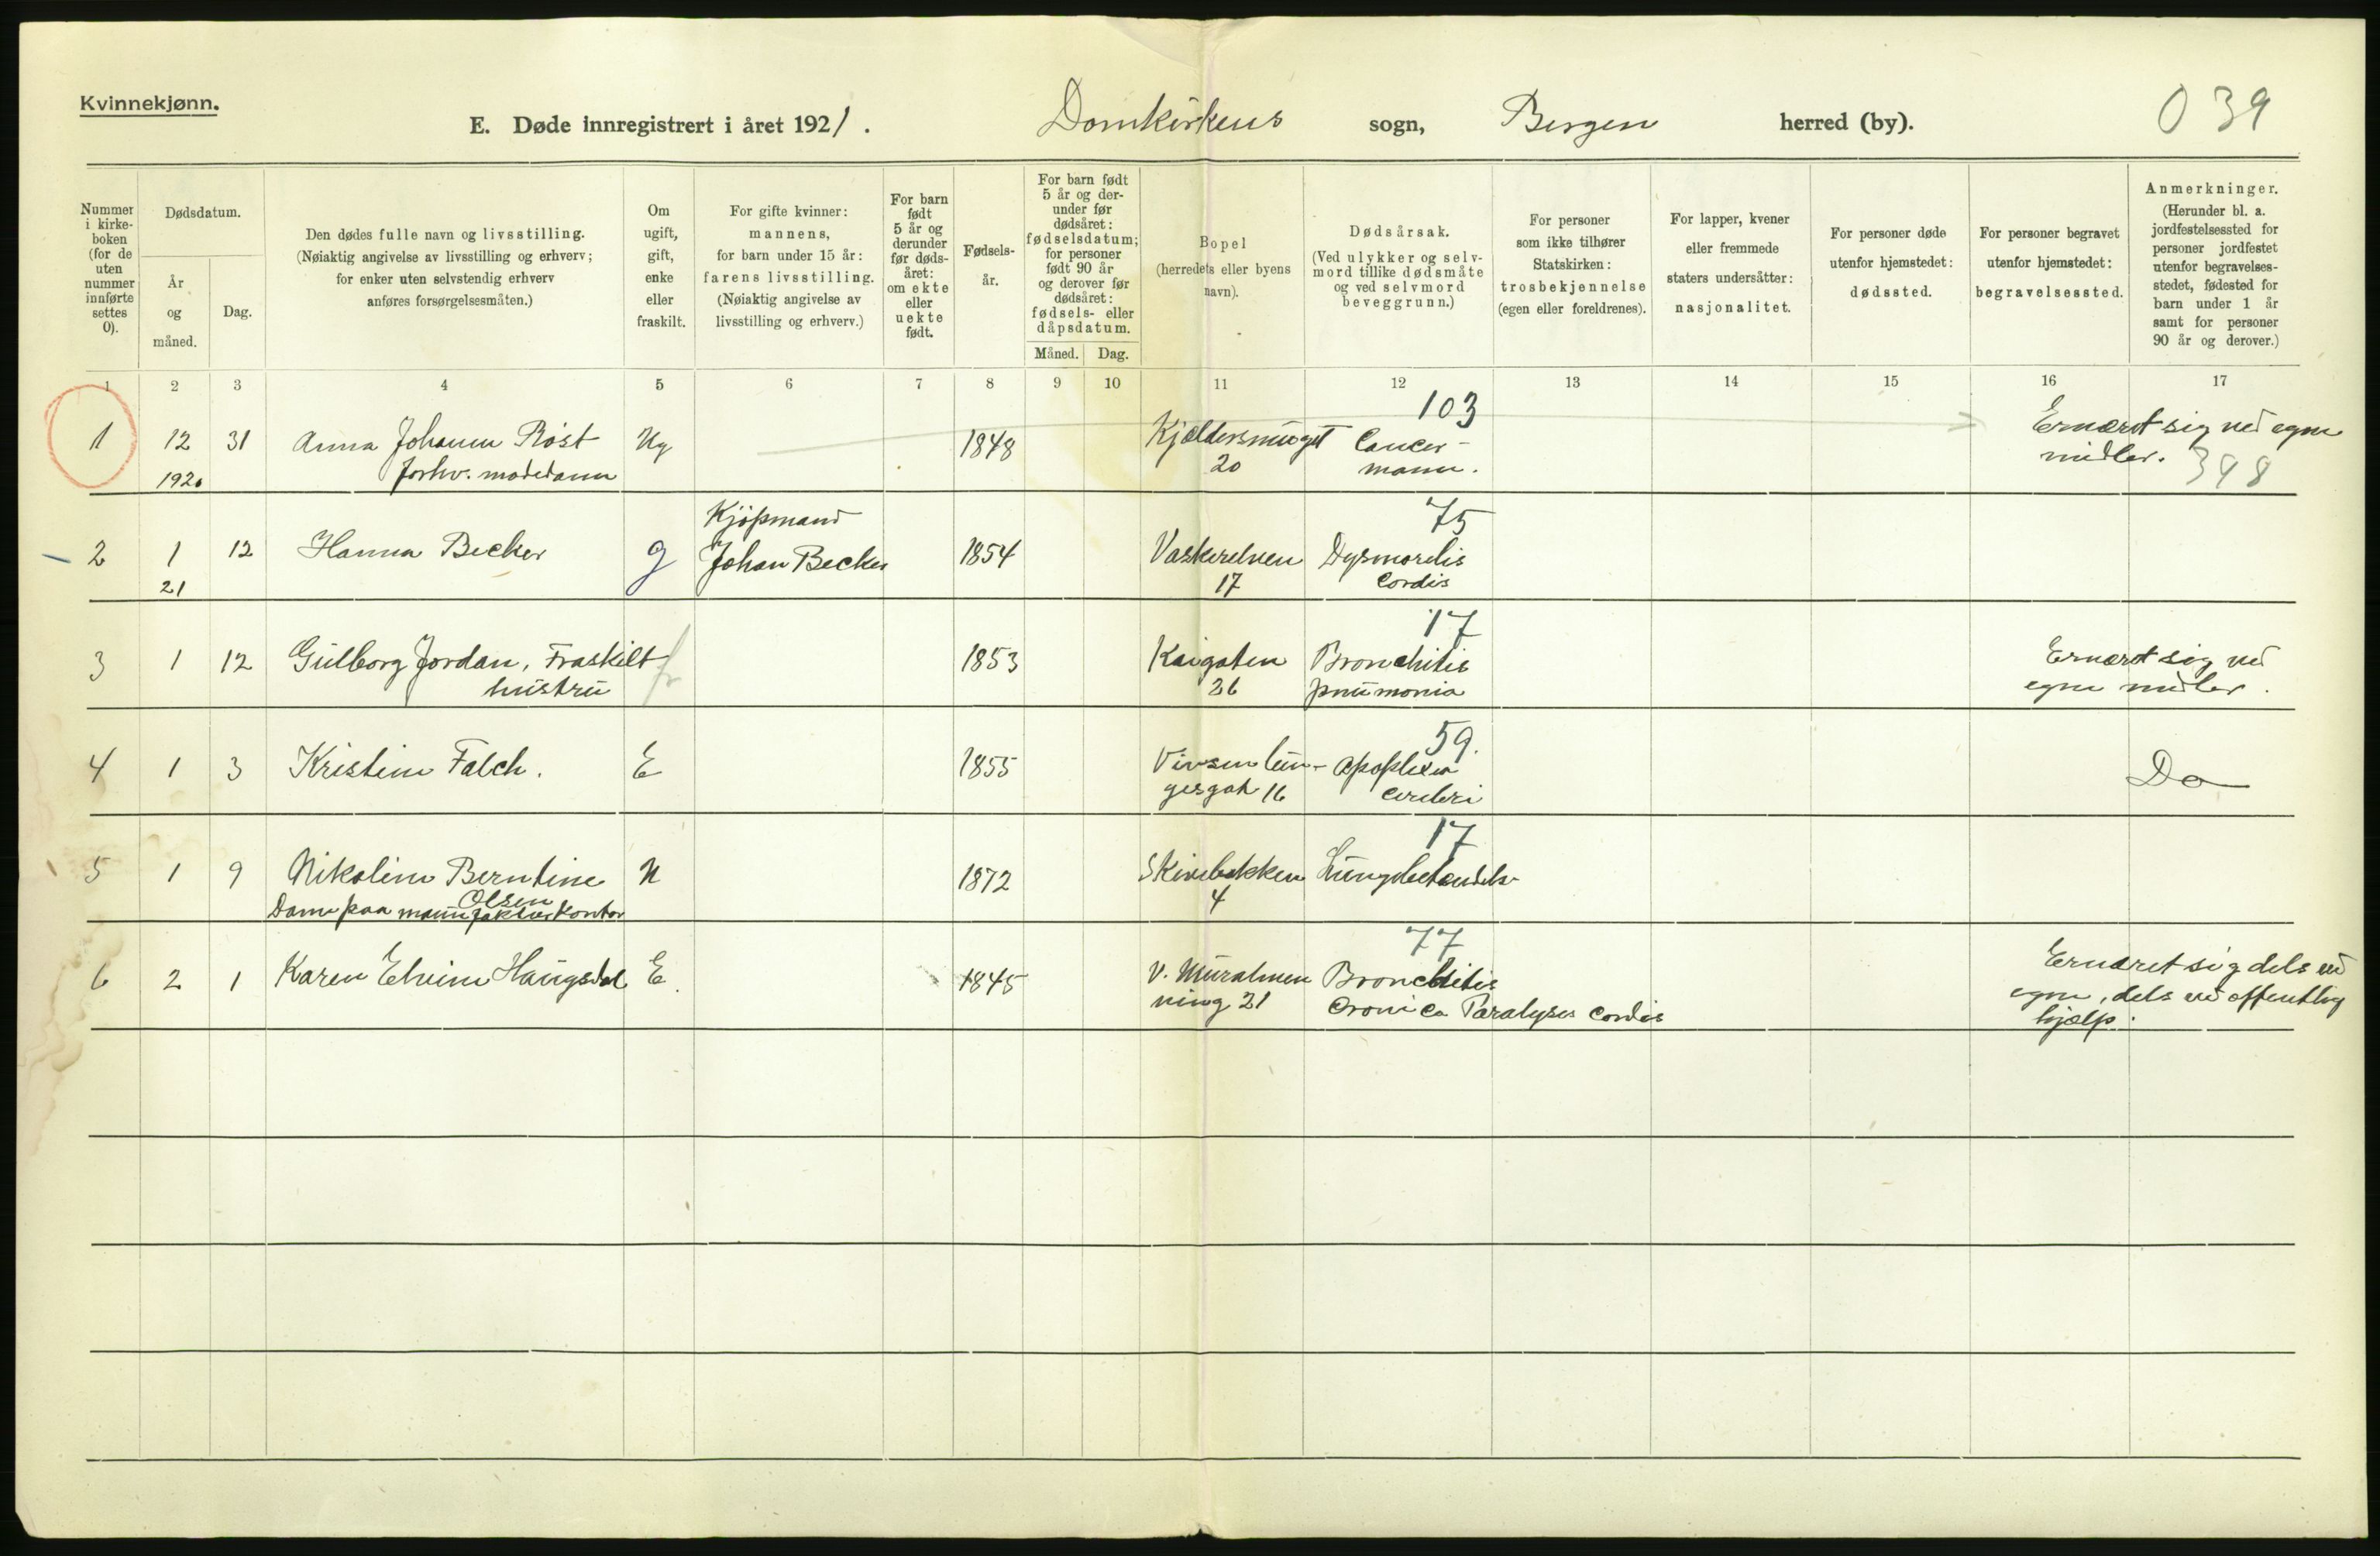 Kvinnekjønn.
E. Døde innregistrert i året 1921. Domkirkens sogn, Bergen herred (by). 039
Nummer i kirkeboken (for de uten nummer innførte settes 0).
Dødsdatum.
År og måned.
Dag.
Den dødes fulle navn og livsstilling.
(Nøiaktig angivelse av livsstilling og erhverv;
for enker uten selvstendig erhverv
anføres forsørgelsesmåten.)
Om ugift, gift, enke eller fraskilt.
For gifte kvinner:
mannens,
for barn under 15 år:
farens livsstilling.
(Nøiaktig angivelse av
livsstilling og erhverv.)
For barn født 5 år og derunder før døds-året: om ekte eller uekte født.
Fødsels-
år.
For barn født
5 år og der-
under før
dødsåret:
fødselsdatum;
for personer
født 90 år
og derover før
dødsåret:
fødsels- eller
dåpsdatum.
Måned. Dag.
Bopel
(herredets eller byens
navn).
Dødsårsak.
(Ved ulykker og selv-
mord tillike dødsmåte
og ved selvmord
beveggrunn.)
For personer
som ikke tilhører
Statskirken:
trosbekjennelse
(egen eller foreldrenes).
For lapper, kvener
eller fremmede
staters undersåtter:
nasjonalitet.
For personer døde
utenfor hjemstedet:
dødssted.
For personer begravet
utenfor hjemstedet:
begravelsessted.
Anmerkninger.
(Herunder bl. a.
jordfestelsessted for
personer jordfestet
utenfor begravelses-
stedet, fødested for
barn under 1 år
samt for personer
90 år og derover.)
1 2 3 4 5 6 7 8 9 10 11 12 13 14 15 16 17
103
1 12 31 Anna Johanne Röst Ug 1848 Kjældersmuget Cancer Ernæret sig ved egne
1920 forhv. 20 mamm. midler. 398
Kjöpmand 75
2 1 12 Hanna Becker g Johan Becker 1854 Vaskerelven
21 17 Cordis
17
3 1 12 Gulborg Jordan, Fraskilt fr 1853 Kaigaten Bronchitis Ernæret sig ved
hustru 26 pnumonia egne midler.
59.
4 1 3 Kristine Falch. E 1855 apoplexia Do
gesgate 16 cerebri
17
5 1 9 Nikoline Berntine U 1872 Skivebakken Lungebetændelse
Olsen 4
Dame paa manufakturkontor
77
6 2 1 Karen Elvine Haugsdal E. 1845 V. Muralmen Bronchitis Ernæret sig dels ved
ning 21 Cronica Paralyses Cordis egne, dels ved offentlig
hjælp.